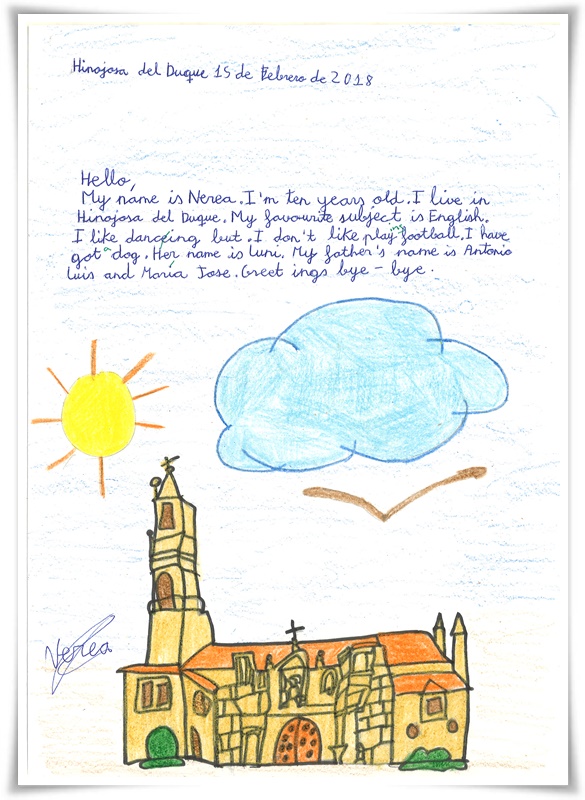 Hinojosa del Duque 15 de Febrero de 2018
Hello,
My name is Nerea. I'm ten years old. I live in
Hinojosa del Duque. My favourite subject is English.
I like danceing but. I don't like playing football. I have
got a dog. Her name is Luni. My father's name is Antonio
Luis and María Jose. Greetings bye - bye.
Nerea